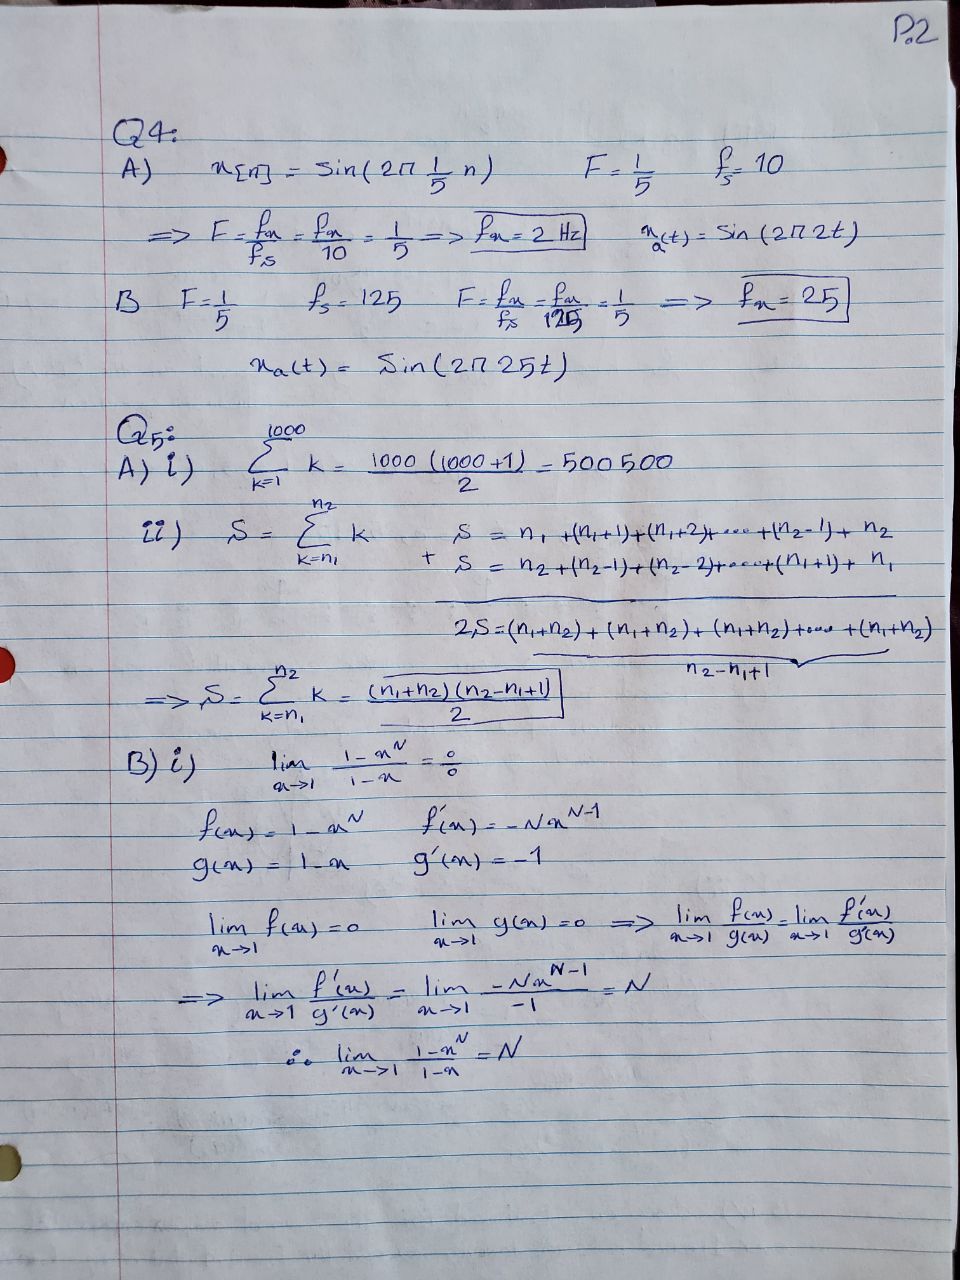 P.2
Q4:
A) x[n] = Sin(2π 1/5 n) F = 1/5 fs = 10
=> F = fx/fs = fx/10 = 1/5 => fx = 2 Hz xa(t) = Sin(2π2t)
B F = 1/5 fs = 125 F = fx/fs = fx/125 = 1/5 => fx = 25
xa(t) = Sin(2π25t)
Q5:
A) i) ∑_{k=1}^{1000} k = 1000(1000+1)/2 = 500500
ii) S = ∑_{k=n1}^{n2} k S = n1+(n1+1)+(n1+2)+....+(n2-1)+n2
+ S = n2+(n2-1)+(n2-2)+....+(n1+1)+n1
2S=(n1+n2)+(n1+n2)+(n1+n2)+....+(n1+n2)
n2-n1+1
=> S = ∑_{k=n1}^{n2} k = (n1+n2)(n2-n1+1)/2
B) i) lim_{x→1} (1-x^N)/(1-x) = 0/0
f(x) = 1-x^N f'(x) = -Nx^{N-1}
g(x) = 1-x g'(x) = -1
lim_{x→1} f(x)=0 lim_{x→1} g(x)=0 => lim_{x→1} f(x)/g(x) = lim_{x→1} f'(x)/g'(x)
=> lim_{x→1} f'(x)/g'(x) = lim_{x→1} -Nx^{N-1}/-1 = N
∴ lim_{x→1} (1-x^N)/(1-x) = N